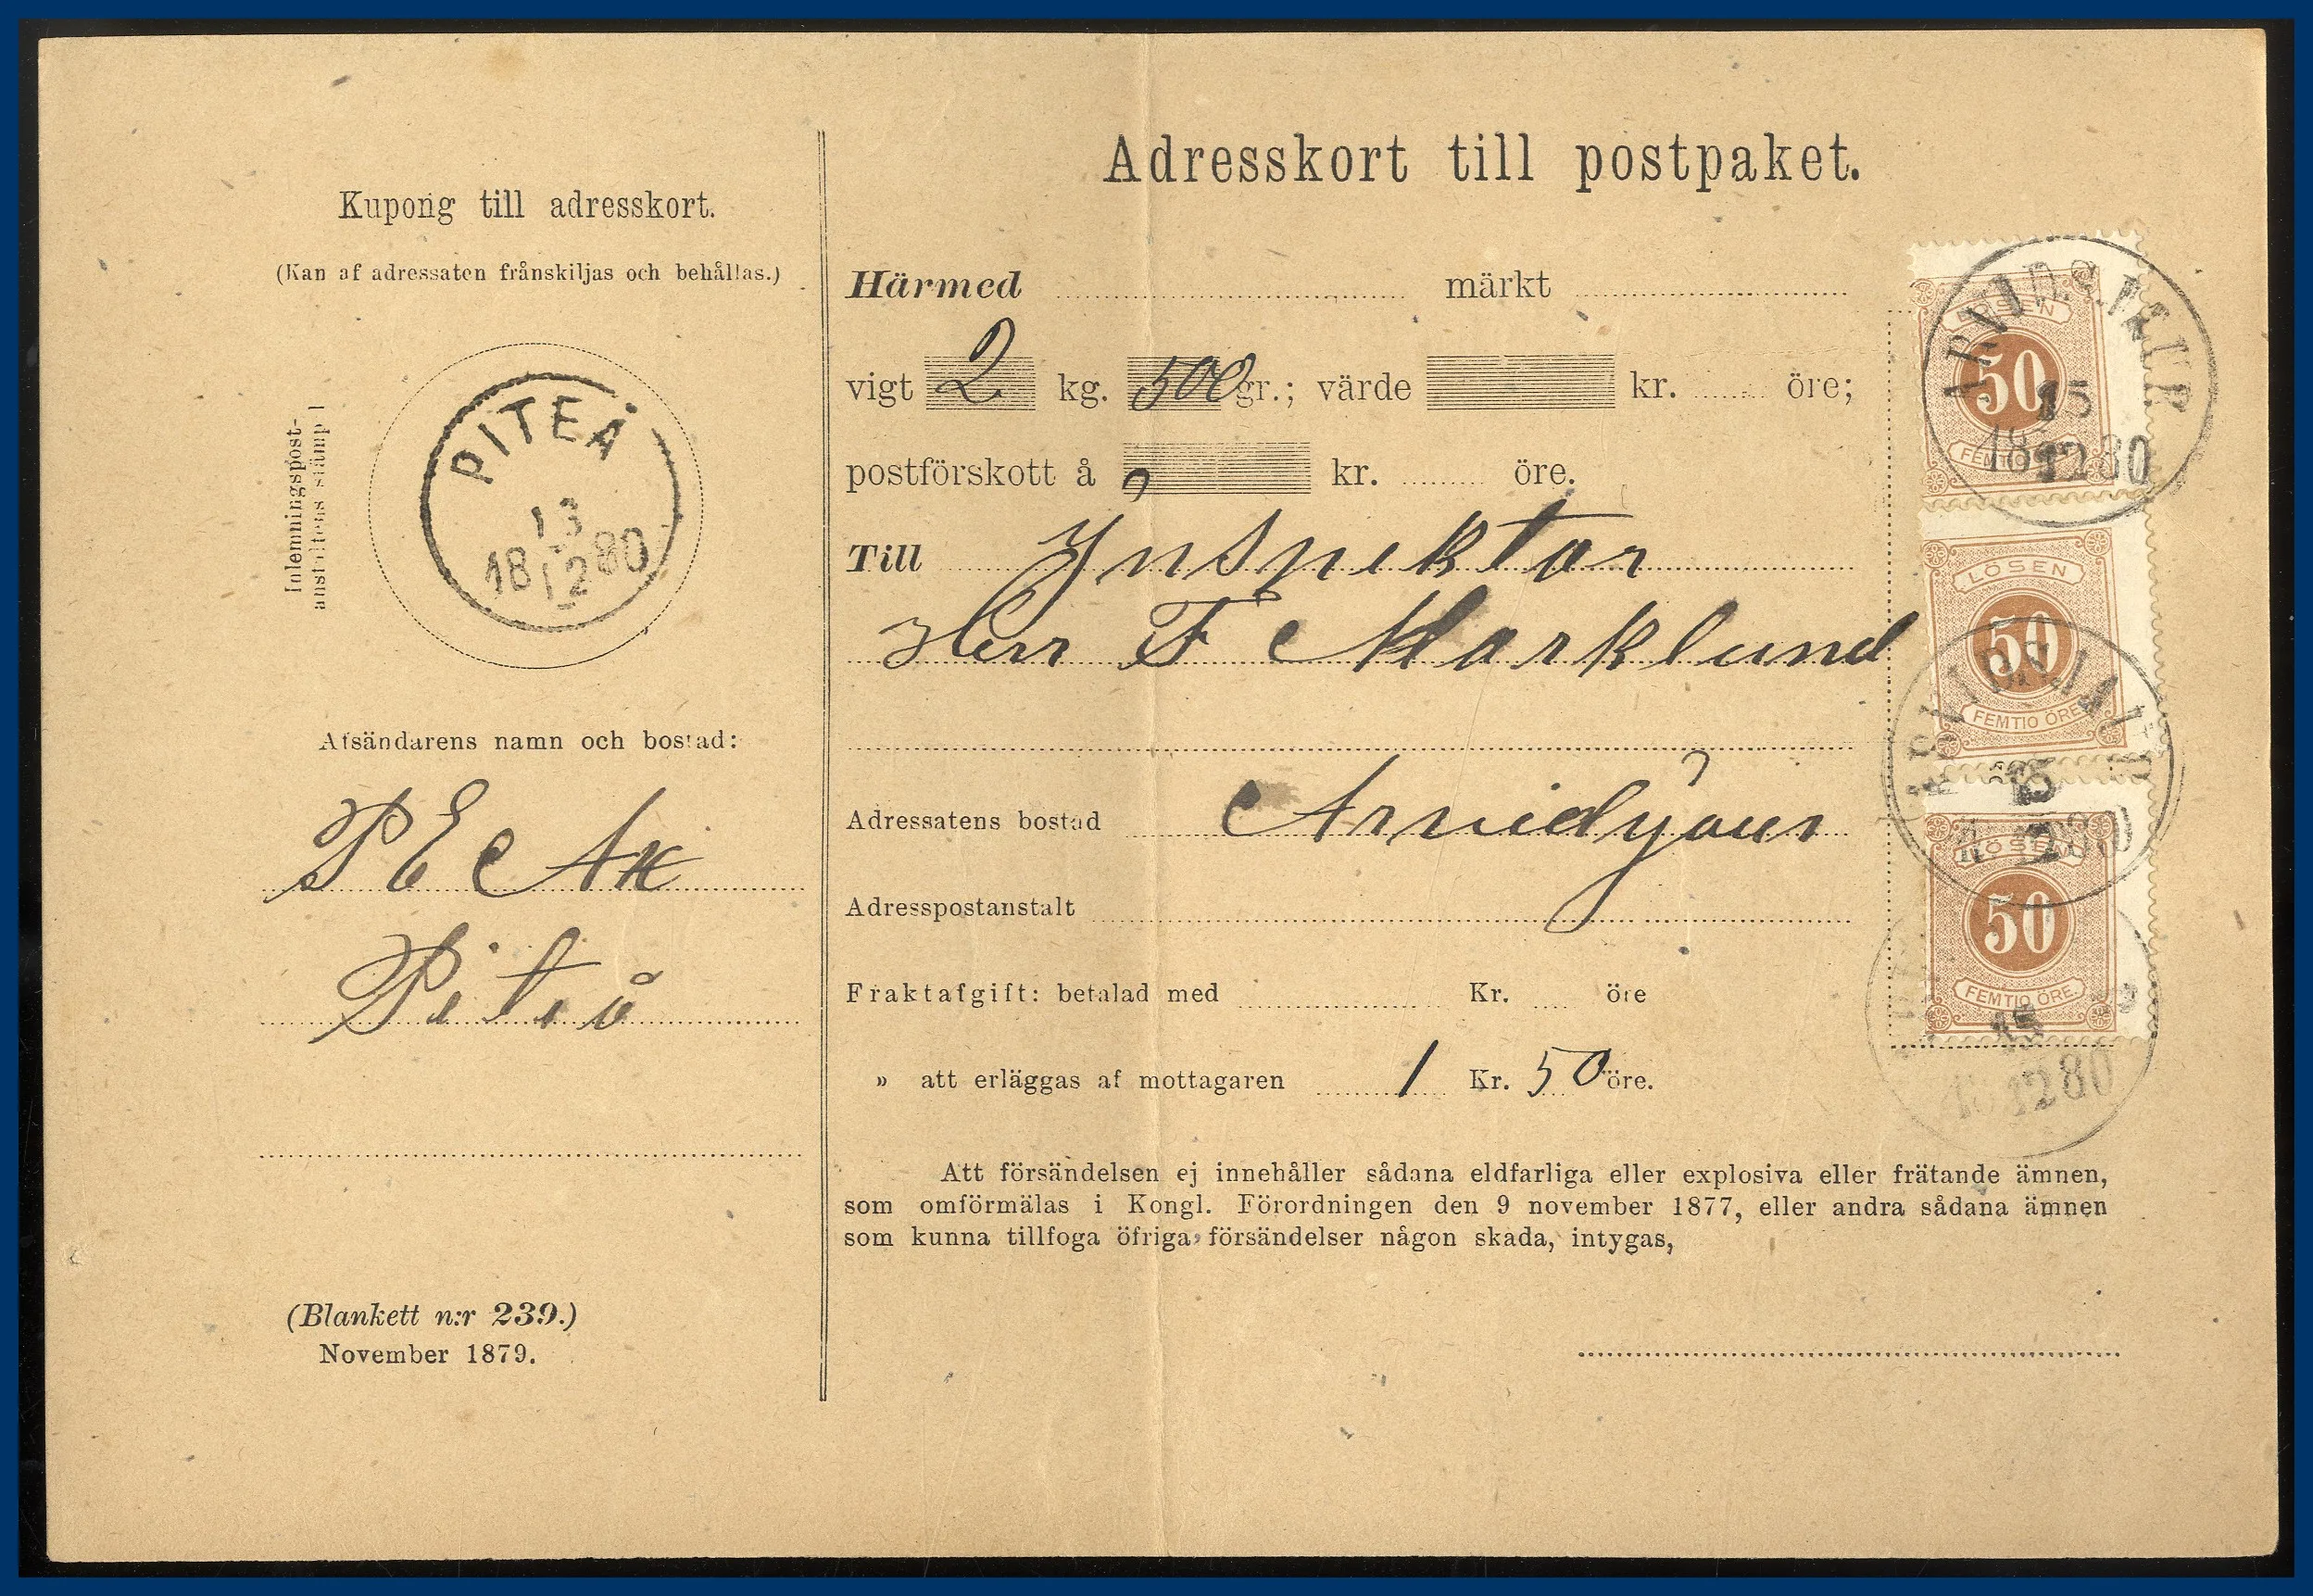 Kupong till adresskort.
(Kan af adressaten frånskiljas och behållas.)
Inlemningspost-
anstaltens stämpel
PITEÅ
13
18 12 80
Afsändarens namn och bostad:
P E
Piteå
(Blankett n:r 239.)
November 1879.
Adresskort till postpaket.
Härmed märkt
vigt 2 kg. 500 gr.; värde kr. öre;
postförskott å kr. öre.
Till Ynspektor
Herr F Marklund
Adressatens bostad
Adresspostanstalt
Fraktafgift: betalad med Kr. öre
» att erläggas af mottagaren 1 Kr. 50 öre.
Att försändelsen ej innehåller sådana eldfarliga eller explosiva eller frätande ämnen,
som omförmälas i Kongl. Förordningen den 9 november 1877, eller andra sådana ämnen
som kunna tillfoga öfriga försändelser någon skada, intygas,
LÖSEN
50
FEMTIO
ARVIDSJAUR
15
18 12 80
LÖSEN
50
FEMTIO ÖRE
ARVIDSJAUR
15
12 80
LÖSEN
50
FEMTIO ÖRE.
15
12 80